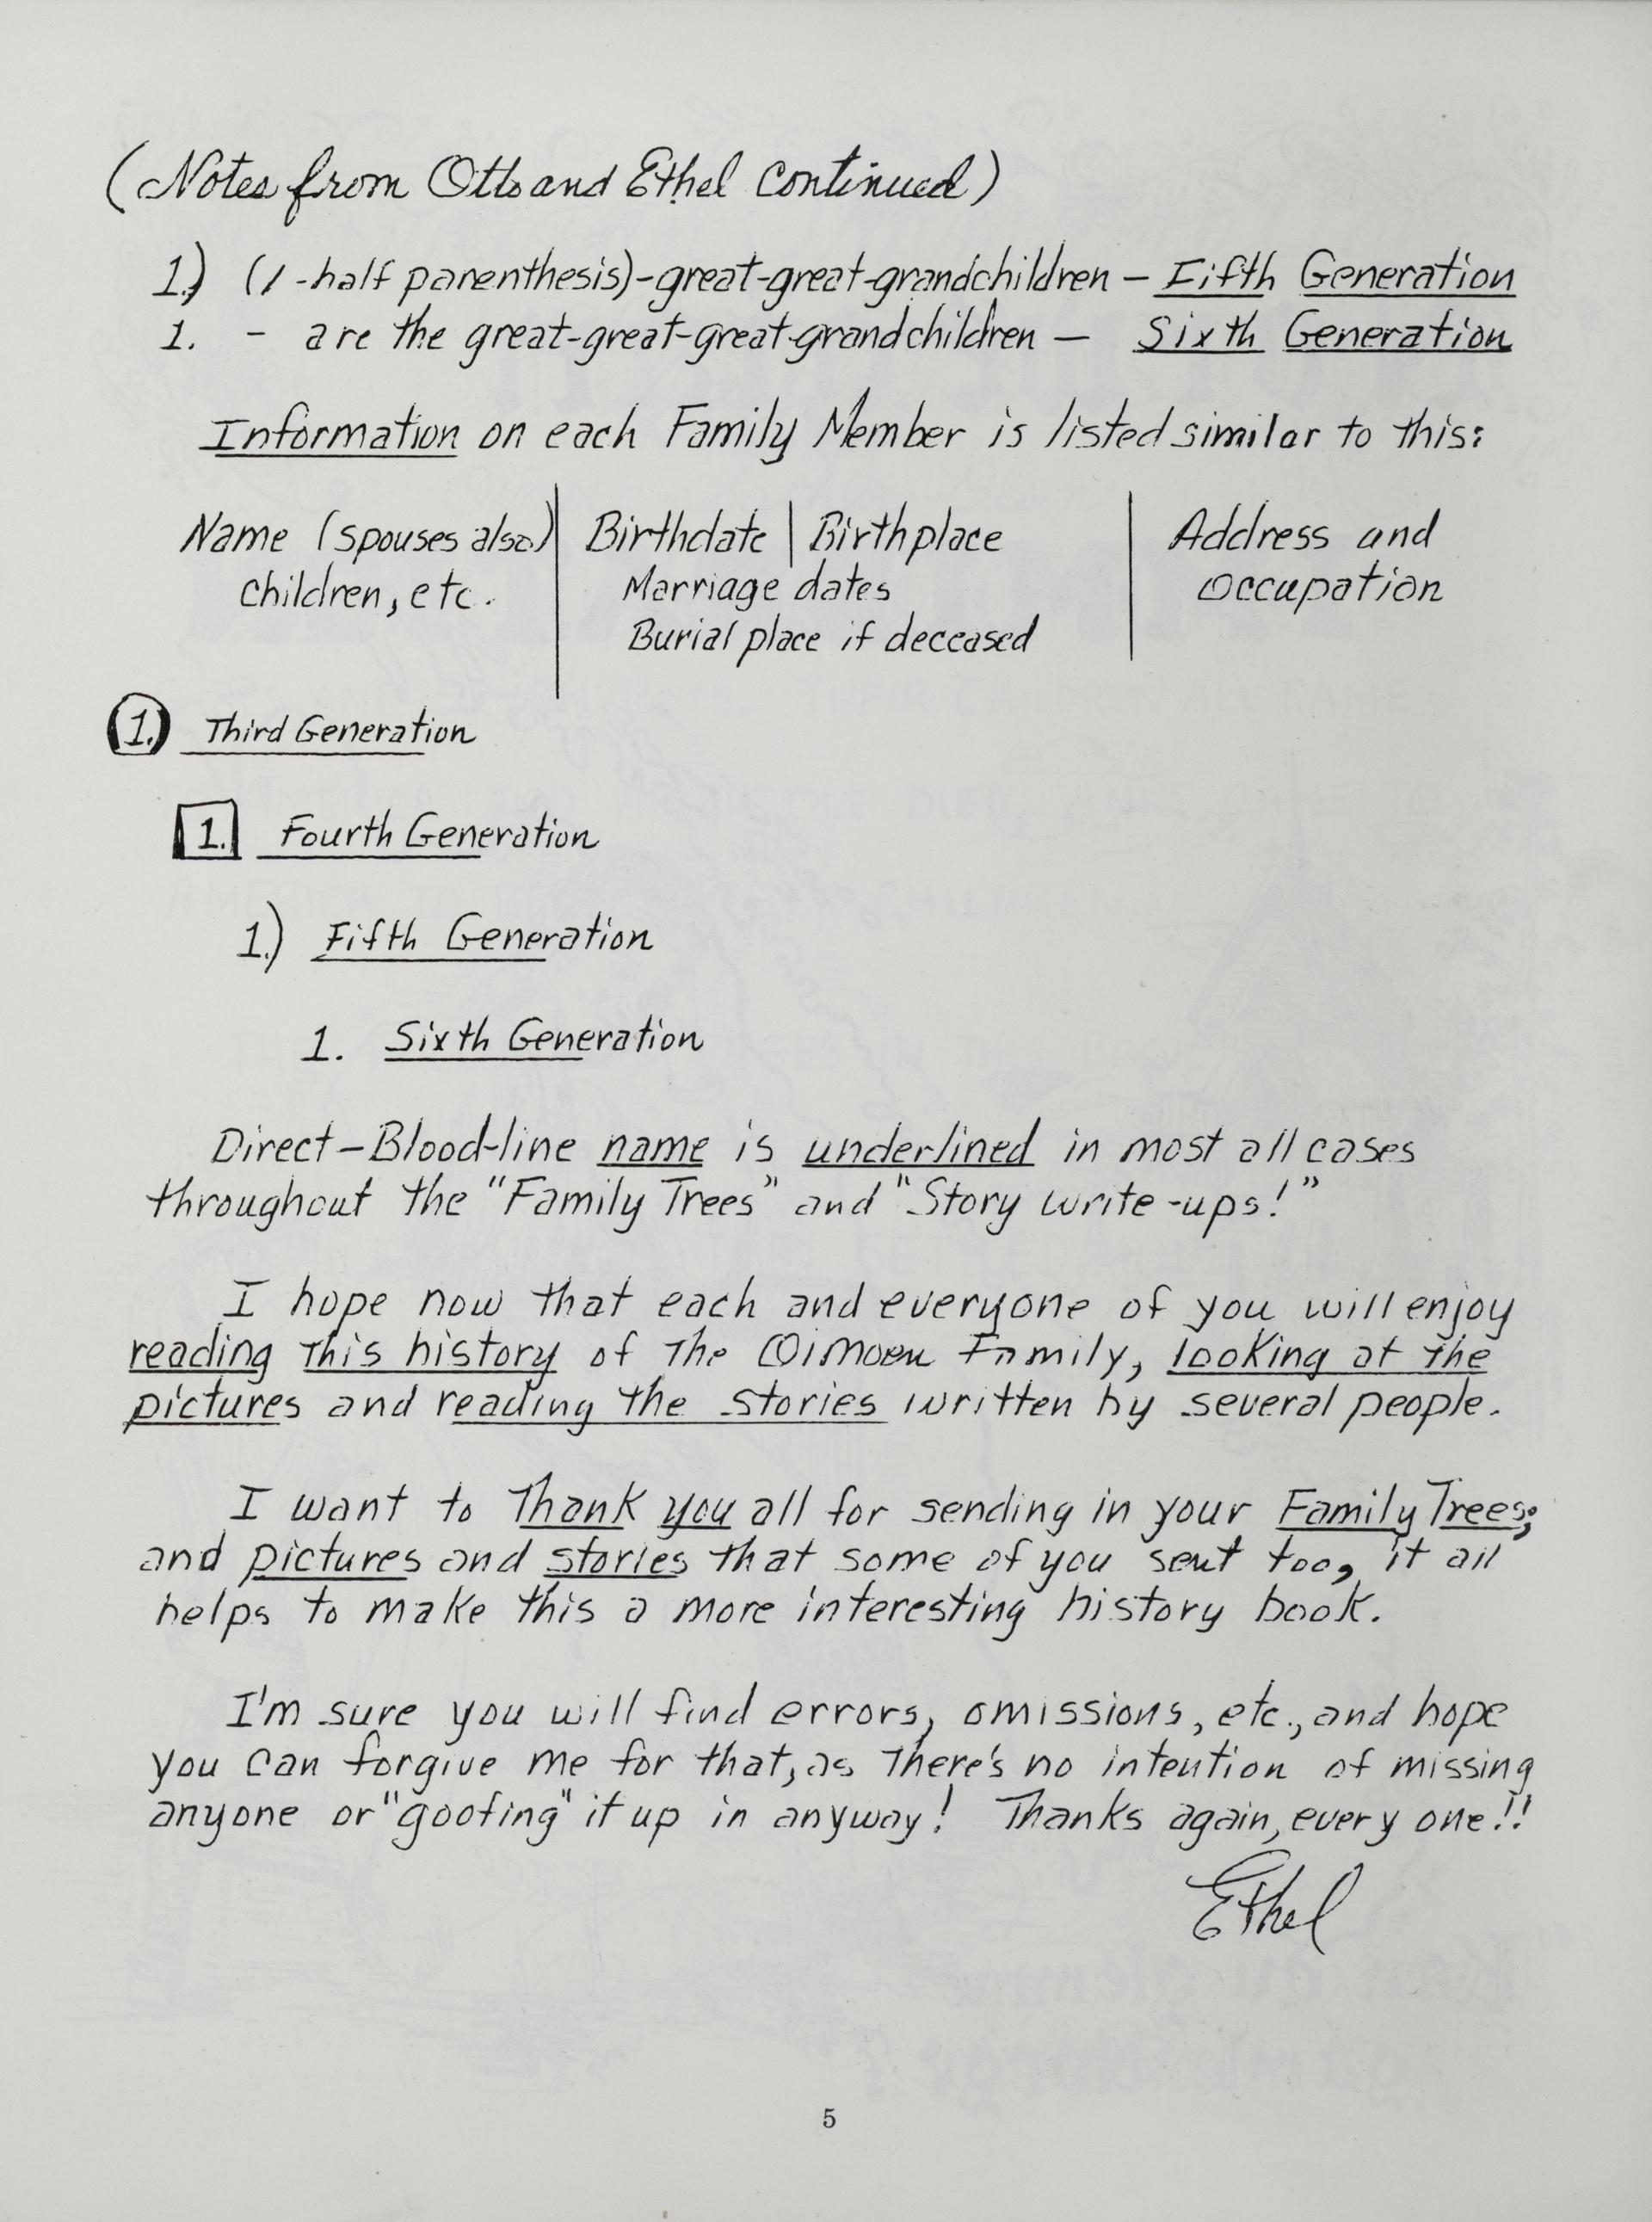 (Notes from Otto and Ethel Continued)
1.) (1-half parenthesis)-great-great-grandchildren - Fifth Generation
1. - are the great-great-great-grandchildren - Sixth Generation
Information on each Family Member is listed similar to this:
Name (spouses also) | Birthdate | Birthplace | Address and
children, etc. Marriage dates occupation
Burial place if deceased
1. Third Generation
1. Fourth Generation
1.) Fifth Generation
1. Sixth Generation
Direct-Blood-line name is underlined in most all cases
throughout the "Family Trees" and "Story write-ups!"
I hope now that each and everyone of you will enjoy
reading this history of the Oimoen Family, looking at the
pictures and reading the stories written by several people.
I want to Thank you all for sending in your Family Trees;
and pictures and stories that some of you sent too, it all
helps to make this a more interesting history book.
I'm sure you will find errors, omissions, etc., and hope
you can forgive me for that, as there's no intention of missing
anyone or "goofing" it up in anyway! Thanks again, every one!!
Ethel
5